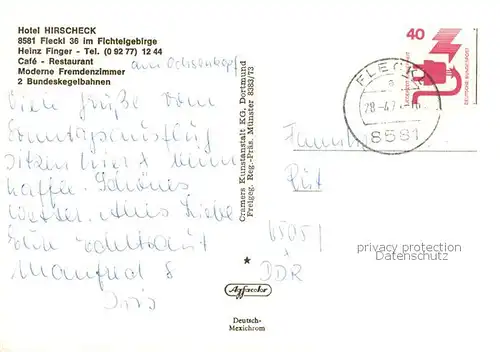 Hotel HIRSCHECK
8581 Fleckl 36 im Fichtelgebirge
Heinz Finger - Tel. (0 92 77) 12 44
Café - Restaurant
Moderne Fremdenzimmer
2 Bundeskegelbahnen
am Ochsenkopf
Viele Grüße vom
Sonntagsausflug
sitzen hier
Kaffee. Schönes
Wetter. Alles Liebe
Eure
Manfred &
Iris
Cramers Kunstanstalt KG, Dortmund
Freigeg. Reg.-Präs. Münster 8383/73
Agfacolor
Deutsch-
Mexichrom
40
DEUTSCHE BUNDESPOST
FLECKL
8581
Familie
DDR
privacy protection
oldthing.com